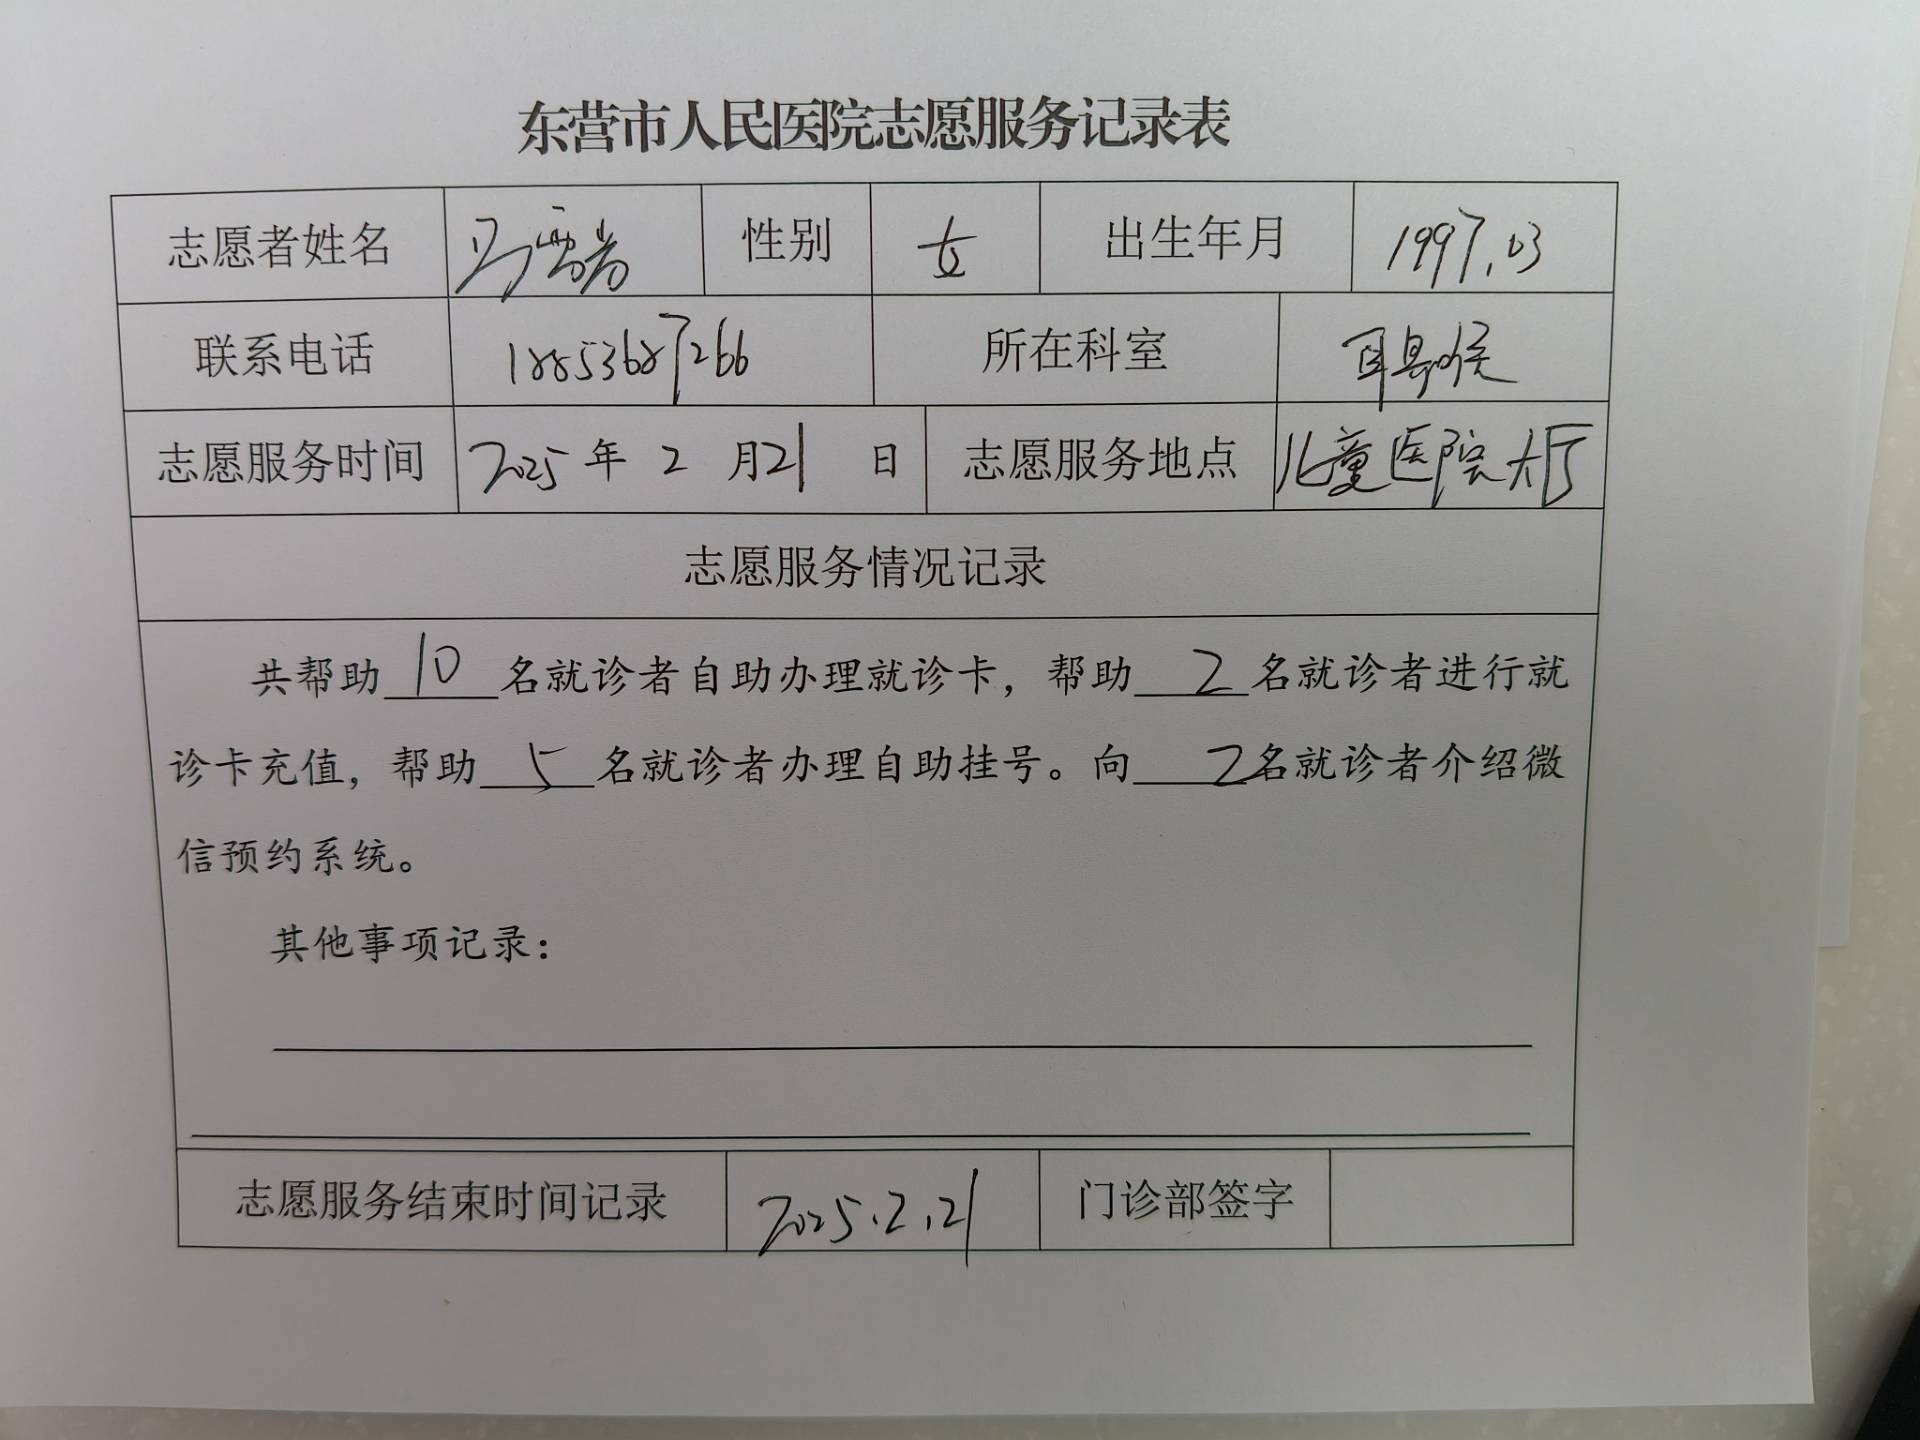 东营市人民医院志愿服务记录表
志愿者姓名 马 性别 女 出生年月 1997.03
联系电话 18853687266 所在科室 耳鼻喉
志愿服务时间 2025年 2 月21 日 志愿服务地点 儿童医院大厅
志愿服务情况记录
共帮助 10 名就诊者自助办理就诊卡，帮助 2 名就诊者进行就
诊卡充值，帮助 5 名就诊者办理自助挂号。向 2名就诊者介绍微
信预约系统。
其他事项记录：
志愿服务结束时间记录 2025.2.21 门诊部签字